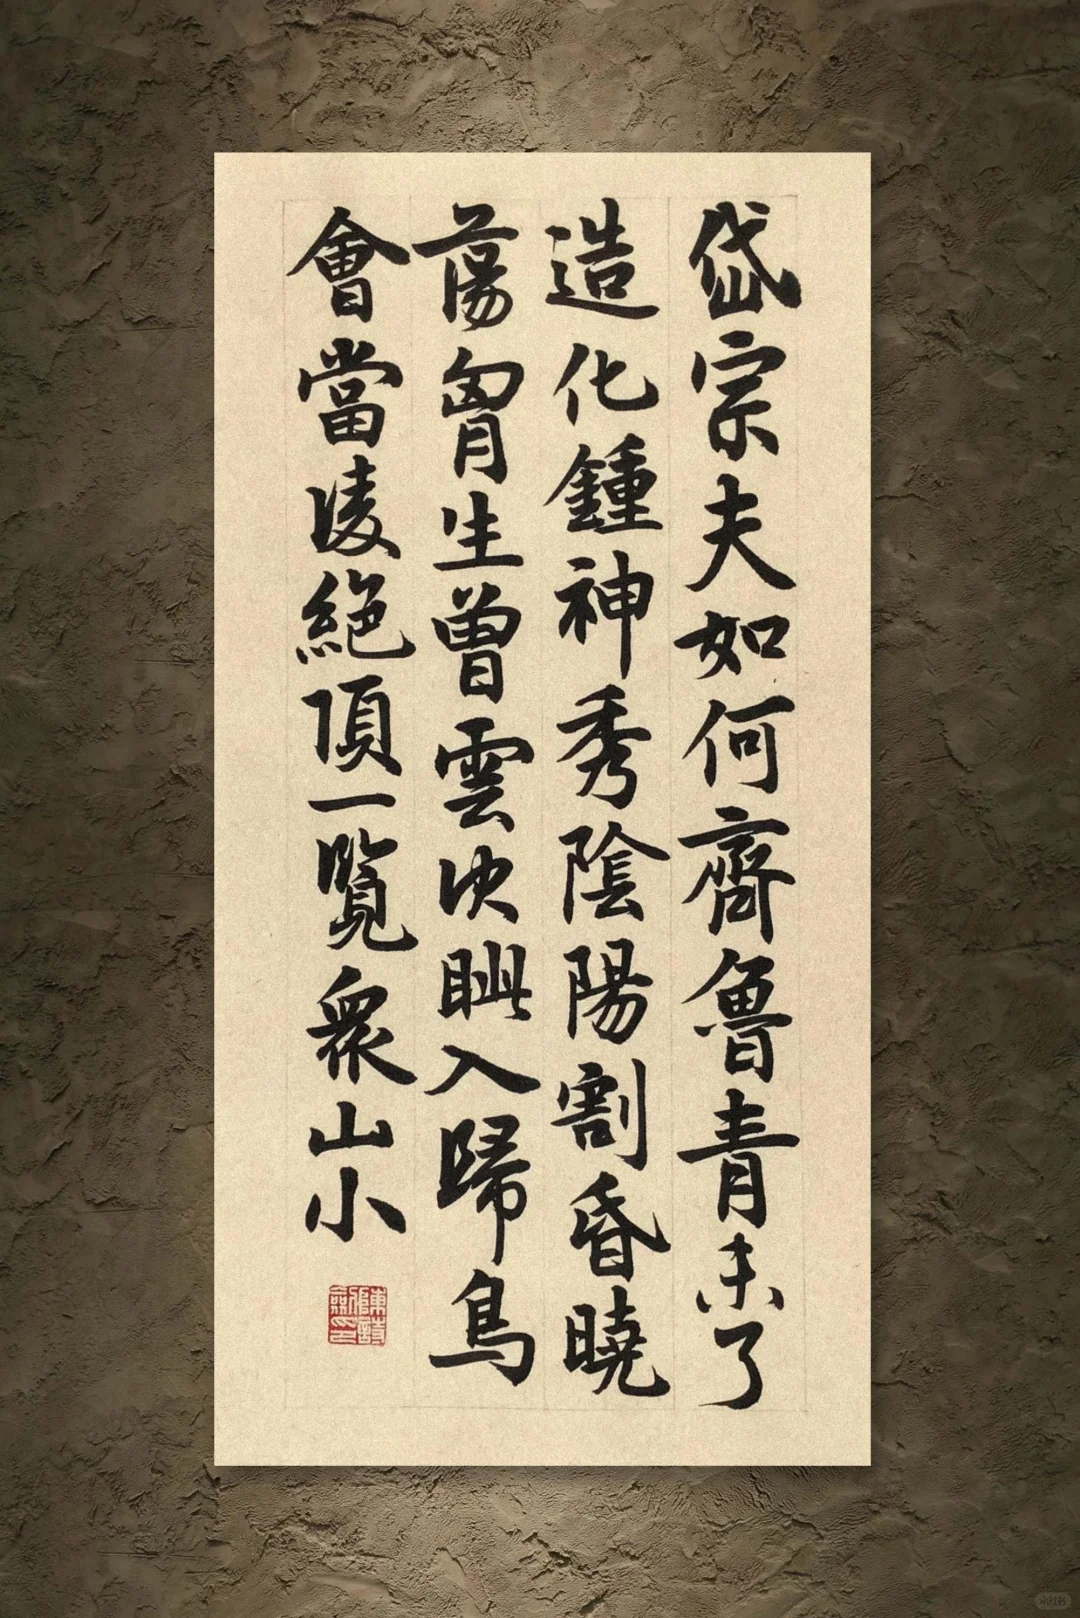 岱宗夫如何齊魯青未了
造化鍾神秀陰陽割昏曉
蕩胷生曾雲决眦入歸鳥
會當凌絶頂一覽衆山小
小红书